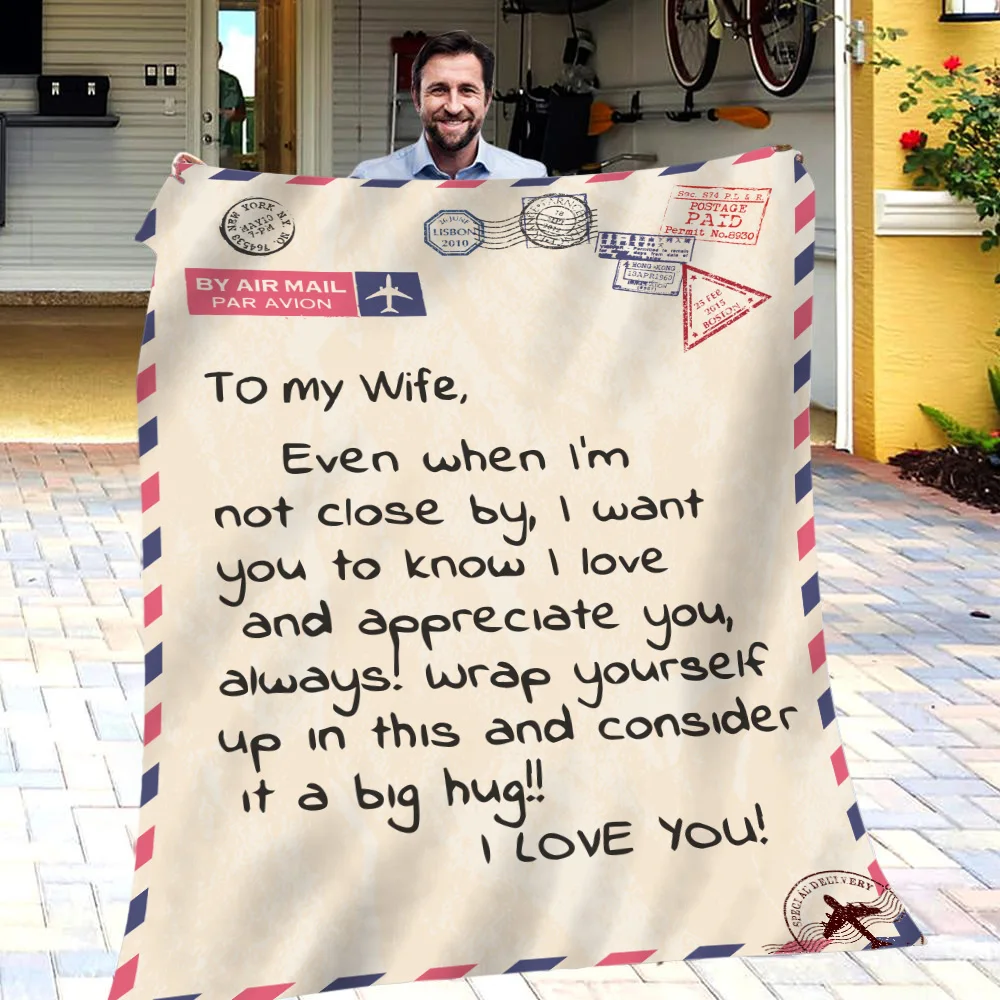 NEW YORK N.Y.
MAY 13
7-PM
26 JUNE
LISBON
2010
Sec. 874 P.L & R.
POSTAGE
PAID
Permit No.8930
HONG KONG
BY AIR MAIL
PAR AVION
25 FEB
2015
BOSTON
To my Wife,
Even when I'm
not close by, I want
you to know I love
and appreciate you,
always! Wrap yourself
up in this and consider
it a big hug!!
I LOVE YOU!
SPECIAL DELIVERY